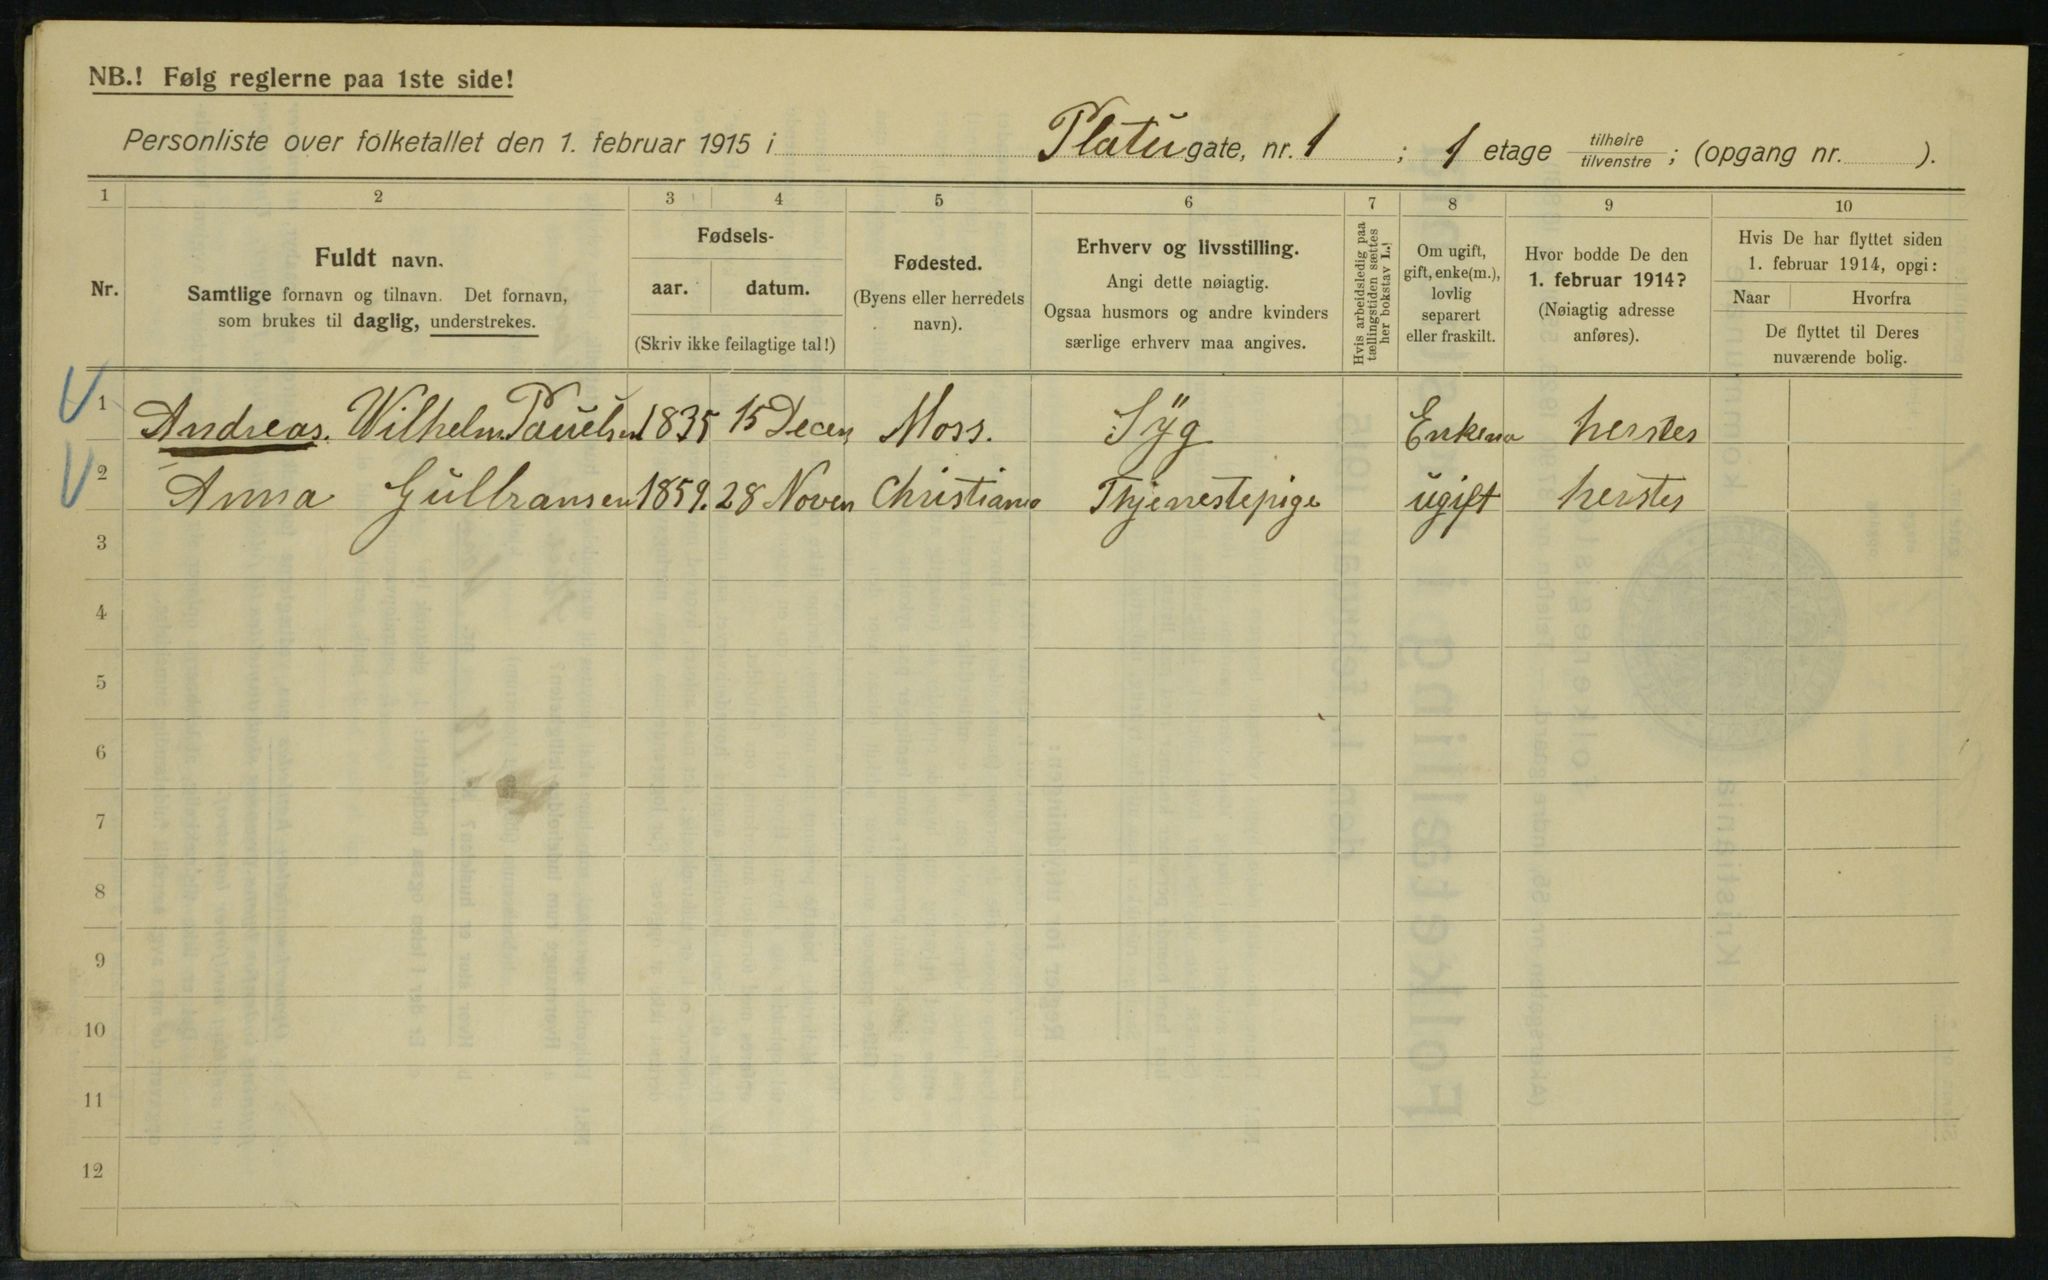 NB.! Følg reglerne paa 1ste side!
Personliste over folketallet den 1. februar 1915 i Platu gate, nr. 1 ; 1 etage tilhøire tilvenstre ; (opgang nr. ).
1 2 3 4 5 6 7 8 9 10
Nr.
Fuldt navn.
Samtlige fornavn og tilnavn. Det fornavn,
som brukes til daglig, understrekes.
Fødsels-
aar. datum.
(Skriv ikke feilagtige tal!)
Fødested.
(Byens eller herredets
navn).
Erhverv og livsstilling.
Angi dette nøiagtig.
Ogsaa husmors og andre kvinders
særlige erhverv maa angives.
Hvis arbeidsledig paa
tællingstiden sættes
her bokstav L.!
Om ugift,
gift, enke(m.),
lovlig
separert
eller fraskilt.
Hvor bodde De den
1. februar 1914?
(Nøiagtig adresse
anføres).
Hvis De har flyttet siden
1. februar 1914, opgi:
Naar Hvorfra
De flyttet til Deres
nuværende bolig.
1 Andreas. Wilhelm Pauelsen 1835 15 Decem Moss. Syg Enkem herstes
2 Anna Gulbransen 1859. 28 Novem Christiania Thjenestepige ugift herstes
3
4
5
6
7
8
9
10
11
12